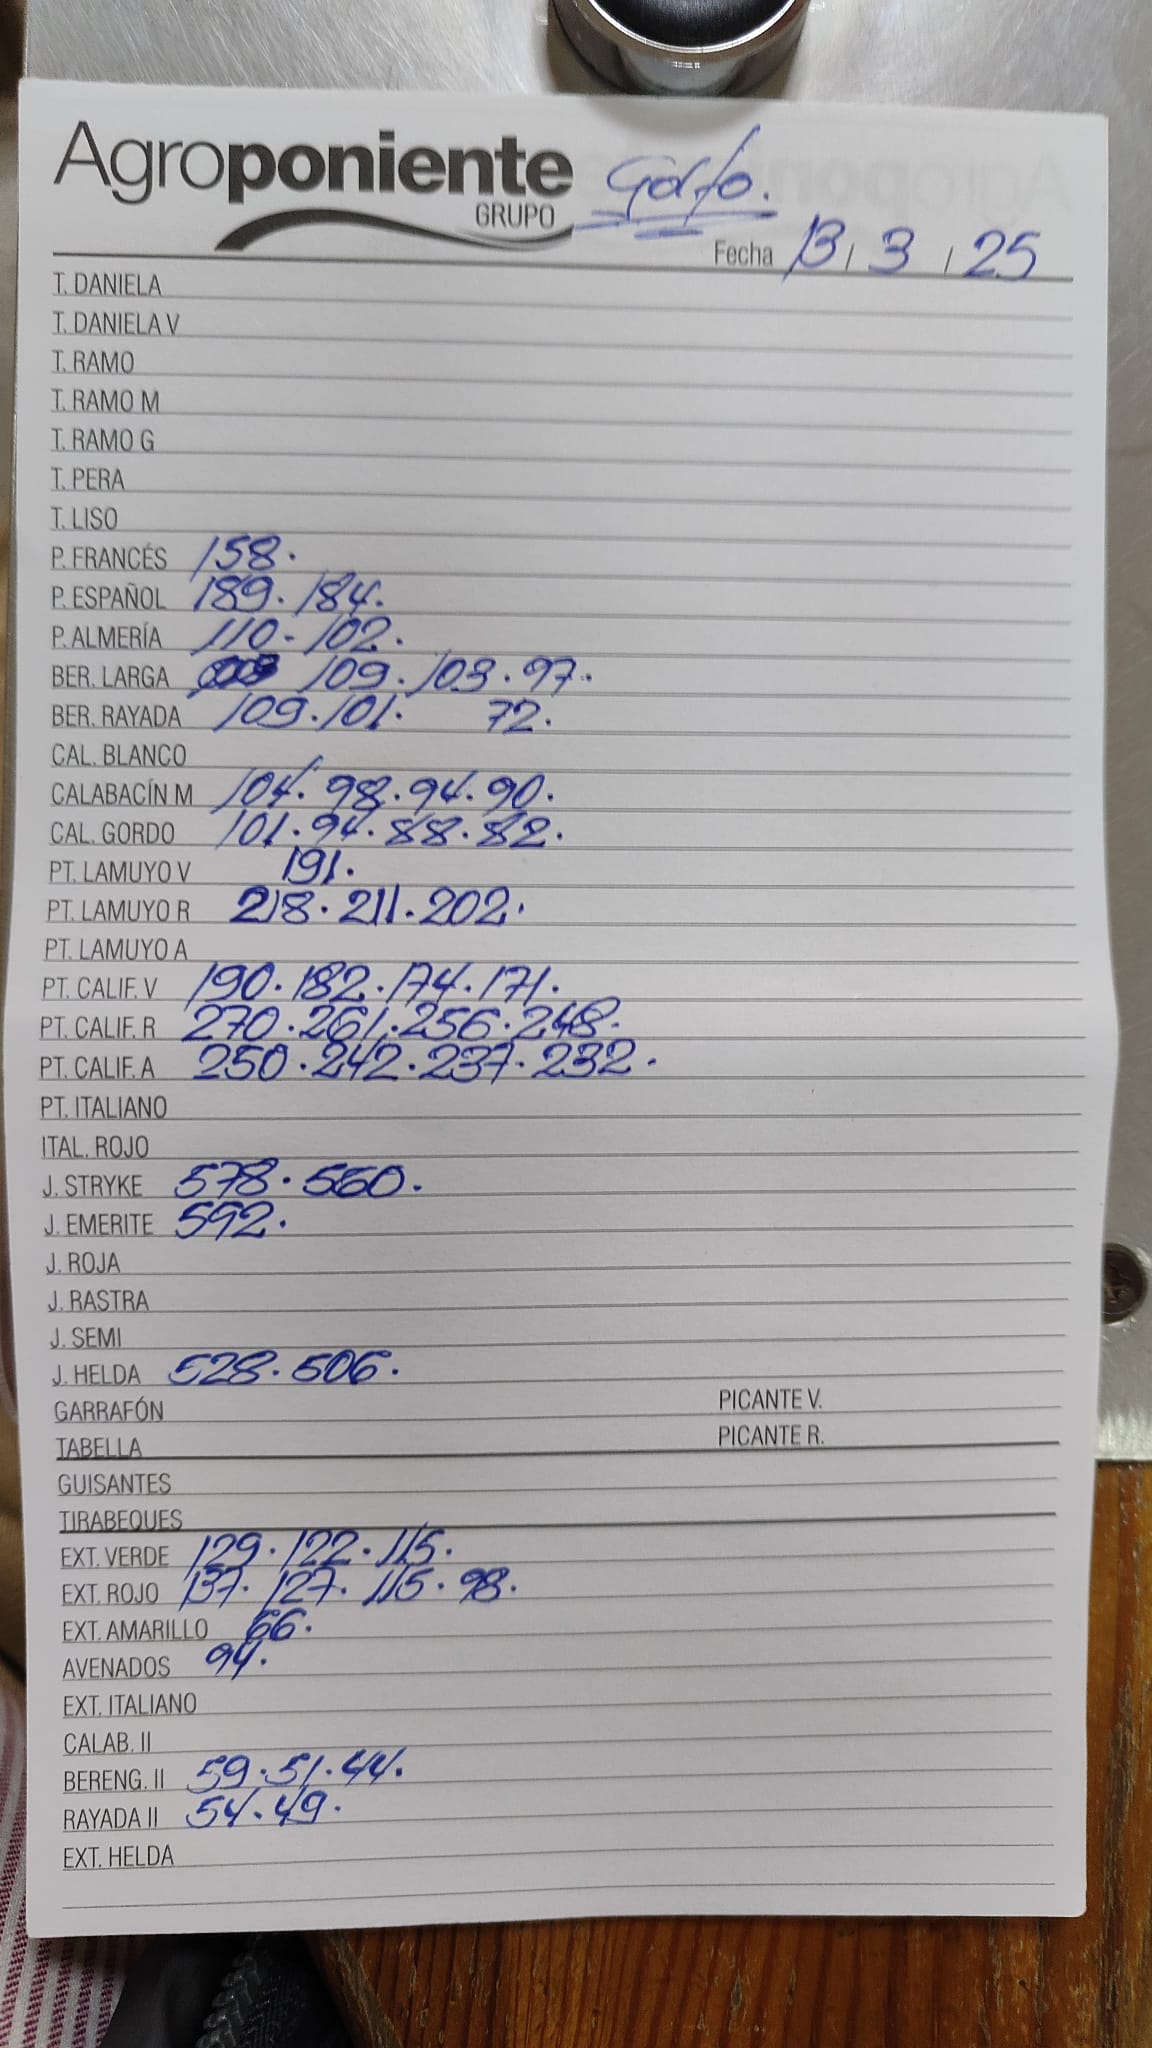 Agroponiente Golfo.
GRUPO
Fecha 13 / 3 / 25
T. DANIELA
T. DANIELA V
T. RAMO
T. RAMO M
T. RAMO G
T. PERA
T. LISO
P. FRANCÉS 158.
P. ESPAÑOL 189. 184.
P. ALMERÍA 110- 102.
BER. LARGA 109. 103. 97.
BER. RAYADA 109. 101. 72.
CAL. BLANCO
CALABACÍN M 104. 98. 94. 90.
CAL. GORDO 101. 94. 88. 82.
PT. LAMUYO V 191.
PT. LAMUYO R 218. 211. 202.
PT. LAMUYO A
PT. CALIF. V 190. 182. 174. 171.
PT. CALIF. R 270. 261. 256. 248.
PT. CALIF. A 250. 242. 237. 232.
PT. ITALIANO
ITAL. ROJO
J. STRYKE 578. 560.
J. EMERITE 592.
J. ROJA
J. RASTRA
J. SEMI
J. HELDA 528. 506.
GARRAFÓN PICANTE V.
TABELLA PICANTE R.
GUISANTES
TIRABEQUES
EXT. VERDE 129. 122. 115.
EXT. ROJO 137. 127. 115. 98.
EXT. AMARILLO 66.
AVENADOS 94.
EXT. ITALIANO
CALAB. II
BERENG. II 59. 51. 44.
RAYADA II 54. 49.
EXT. HELDA